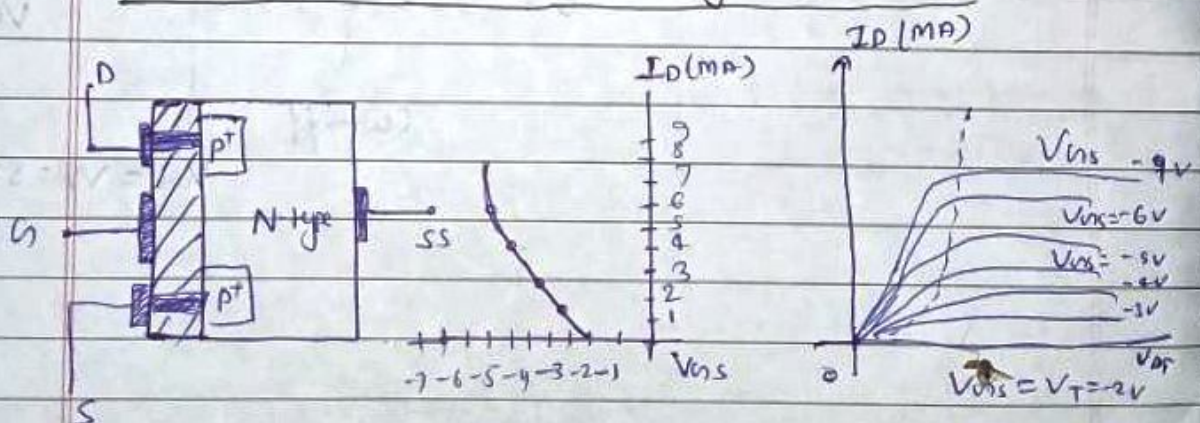 D
P+
N-type
G
SS
P+
S
ID (MA)
9
8
7
6
5
4
3
2
1
-7 -6 -5 -4 -3 -2 -1
VGS
ID (MA)
VGS -9V
VGS=-6V
VGS= -5V
-4V
-3V
0
VDS
VGS = VT = -2V